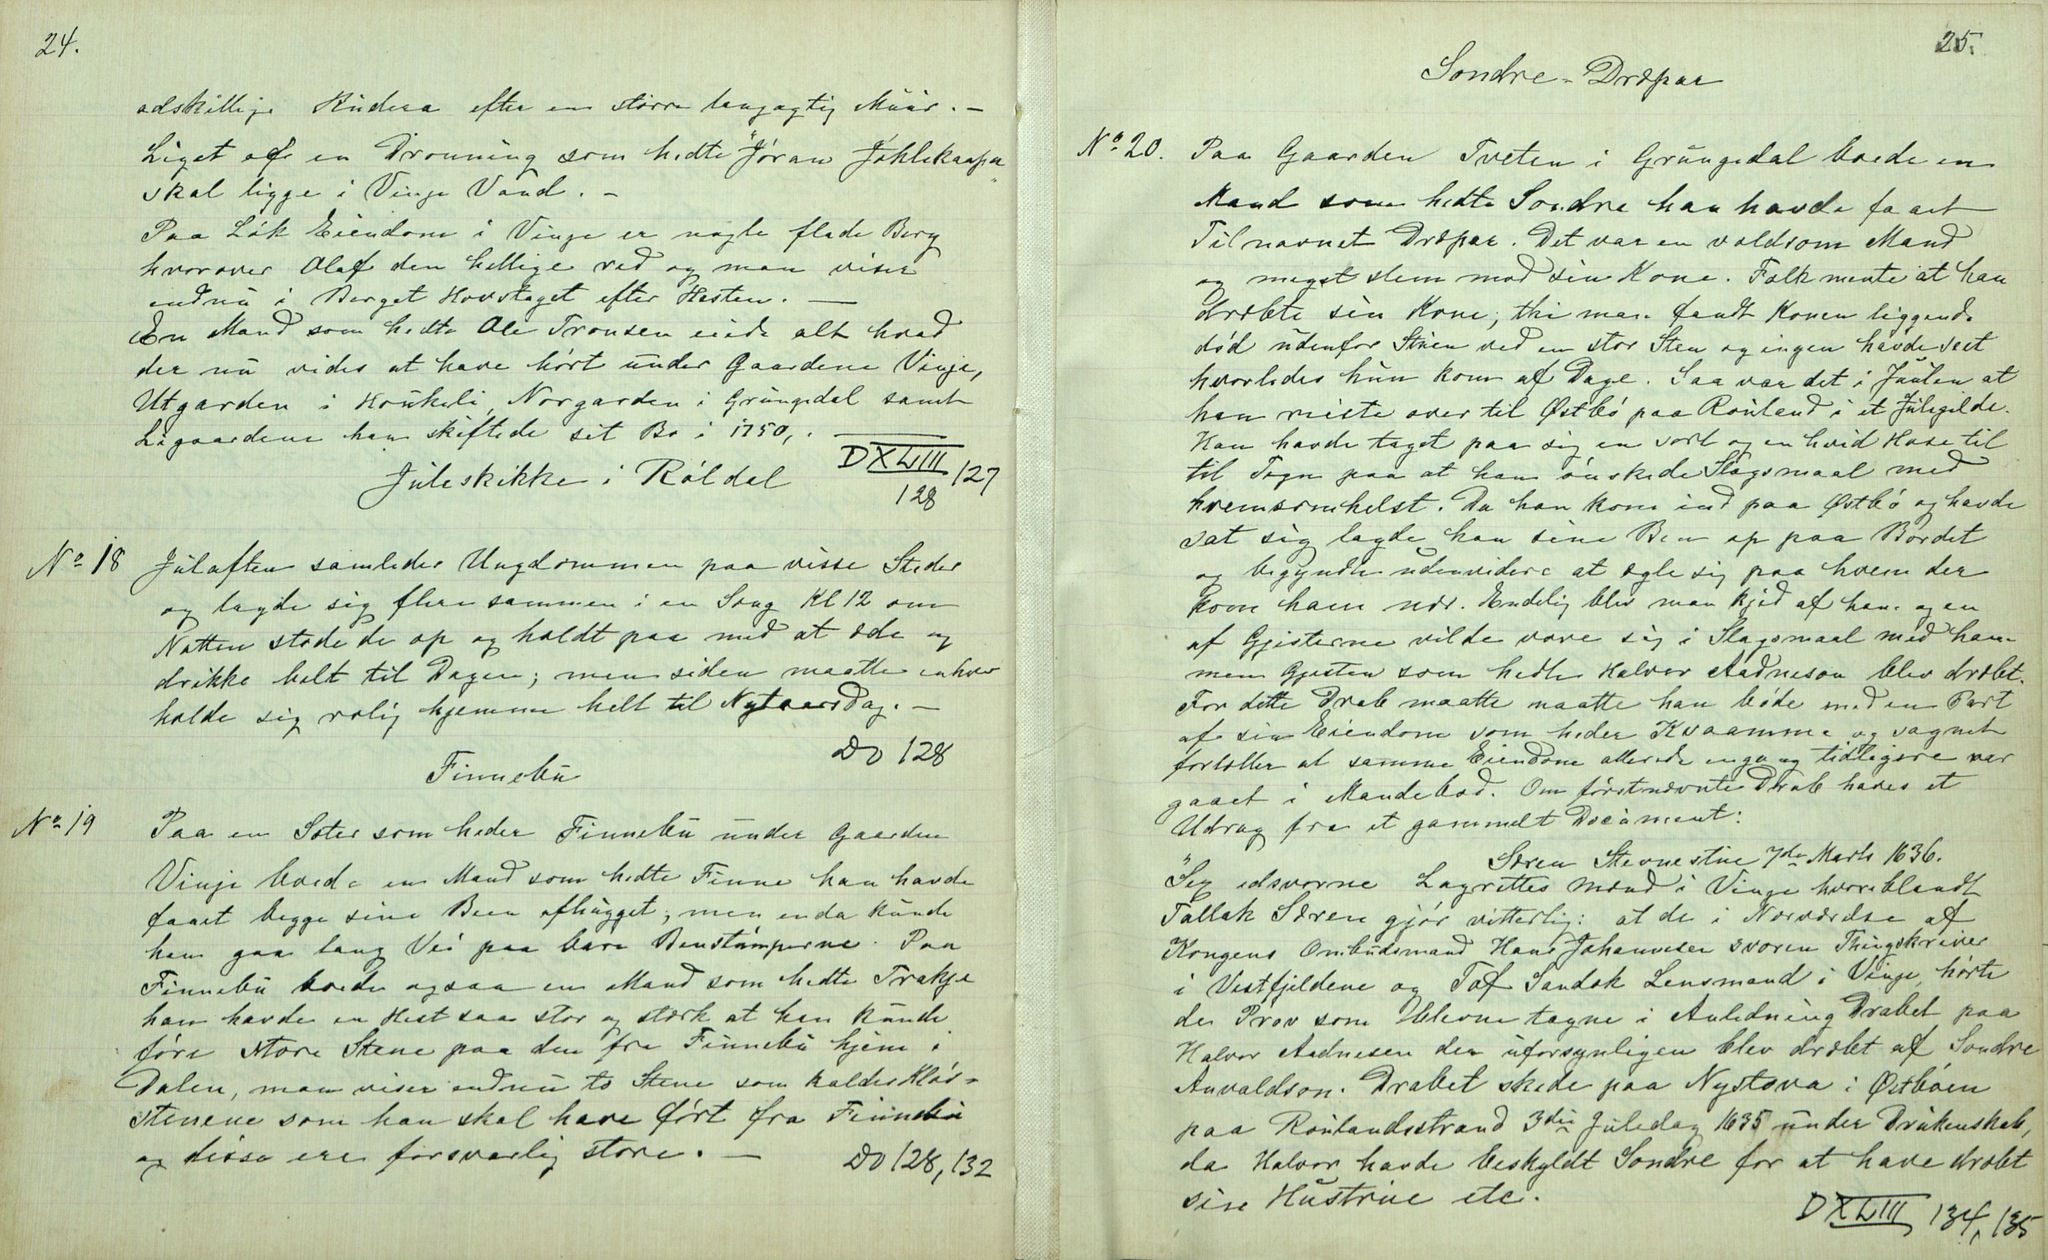 24.
adskillige Ruder efter en større langagtig Muur. —
Liget af en Dronning som hedte "Jøran Jøhlekaapa"
skal ligge i Vinje Vand. —
Paa Løk Eiendom i Vinje er nogle flade Berg
hvorover Olaf den hellige red og man viser
endnu i Berget Hovslaget efter Hesten. —
En Mand som hedte Ole Tronsen eiede alt hvad
der nu vides at have hørt under Gaardene Vinje,
Utgarden i Houkeli, Norgarden i Grungedal samt
Ligaardene han skiftede sit Bo i 1750,.
D XLIII 127
128
Juleskikke i Røldal
No 18 Julaften samledes Ungdommen paa visse Steder
og lagde sig flere sammen i en Seng Kl 12 om
Natten stode de op og holdt paa med at æde og
drikke helt til Dagen; men siden maatte enhver
holde sig rolig hjemme helt til Nytaarsdag. —
Do 128
Finnebu
No 19 Paa en Sæter som heder Finnebu under Gaarden
Vinje boede en Mand som hedte Finne han havde
faaet begge sine Been afhugget; men enda kunde
han gaa lang Vei paa bare Benstumperne. Paa
Finnebu boede ogsaa en Mand som hedte Trakje
han havde en Hest saa stor og stærk at han kunde
føre store Stene paa den fra Finnebu hjem i
Dalen, man viser endnu to Stene som kaldes Kløv-
stenene som han skal have ført fra Finnebu
og disse ere forsvarlig store. —
Do 128, 132
25.
Sondre-Dræpar
No 20. Paa Gaarden Tveten i Grungedal boede en
Mand som hedte Sondre han havde faaet
Tilnavnet Dræpar. Det var en voldsom Mand
og meget slem mod sin Kone. Folk mente at han
dræbte sin Kone; thi man fandt Konen liggende
død udenfor Stuen ved en stor Sten og ingen havde seet
hvorledes hun kom af Dage. Saa var det i Julen at
han reiste over til Østbø paa Rouland i et Julegilde.
Han havde taget paa sig en sort og en hvid Hose til
til Tegn paa at han ønskede Slagsmaal med
hvemsomhelst. Da han kom ind paa Østbø og havde
sat sig lagde han sine Ben op paa Bordet
og begyndte udenvidere at egle sig paa hvem der
kom ham nær. Endelig blev man kjed af ham og en
af Gjesterne vilde vove sig i Slagsmaal med ham
men Gjesten som hedte Halvor Aadneson blev dræbt.
For dette Drab maatte maatte han bøde med en Part
af sin Eiendom som heder Kvaamme og sagnet
fortæller at samme Eiendom allerede engang tidligere var
gaaet i Mandebod. Om førstnævnte Drab haves et
Udrag fra et gammelt Document:
Særen Stevnestue 7de Marts 1636.
"Sex edsvorne Lagrettes mænd i Vinge hvoriblandt
Tallak Særen gjør vitterlig: at de i Nærværelse af
Kongens Ombudsmand Hans Johannesen svoren Thingskriver
i Vestfjeldene og Tof Sandok Lensmand i Vinje, hørte
de Prov som blevne tagne i Anledning Drabet paa
Halvor Aadnesen der uforsynligen blev dræbt af Sondre
Anvaldson. Drabet skede paa Nystova i Østbøen
paa Roulandsstrand 3die Juledag 1635 under Drukenskab,
da Halvor havde beskyldt Sondre for at have dræbt
sin Hustrue etc.
D XLIII 134, 135